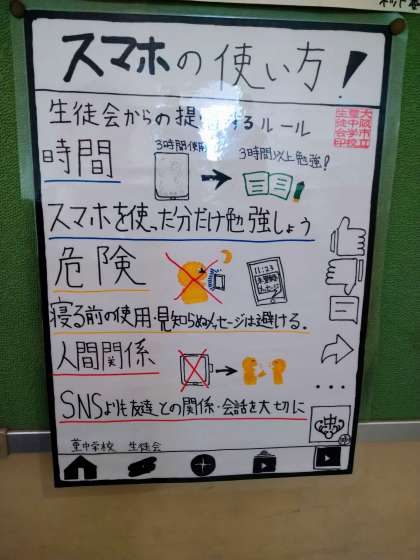 スマホの使い方!
生徒会からの提案するルール
時間
3時間使用
3時間以上勉強!
スマホを使った分だけ勉強しよう
危険
11:23
寝る前の使用・見知らぬメッセージは避ける.
人間関係
SNSよりも友達との関係・会話を大切に
菫中学校 生徒会